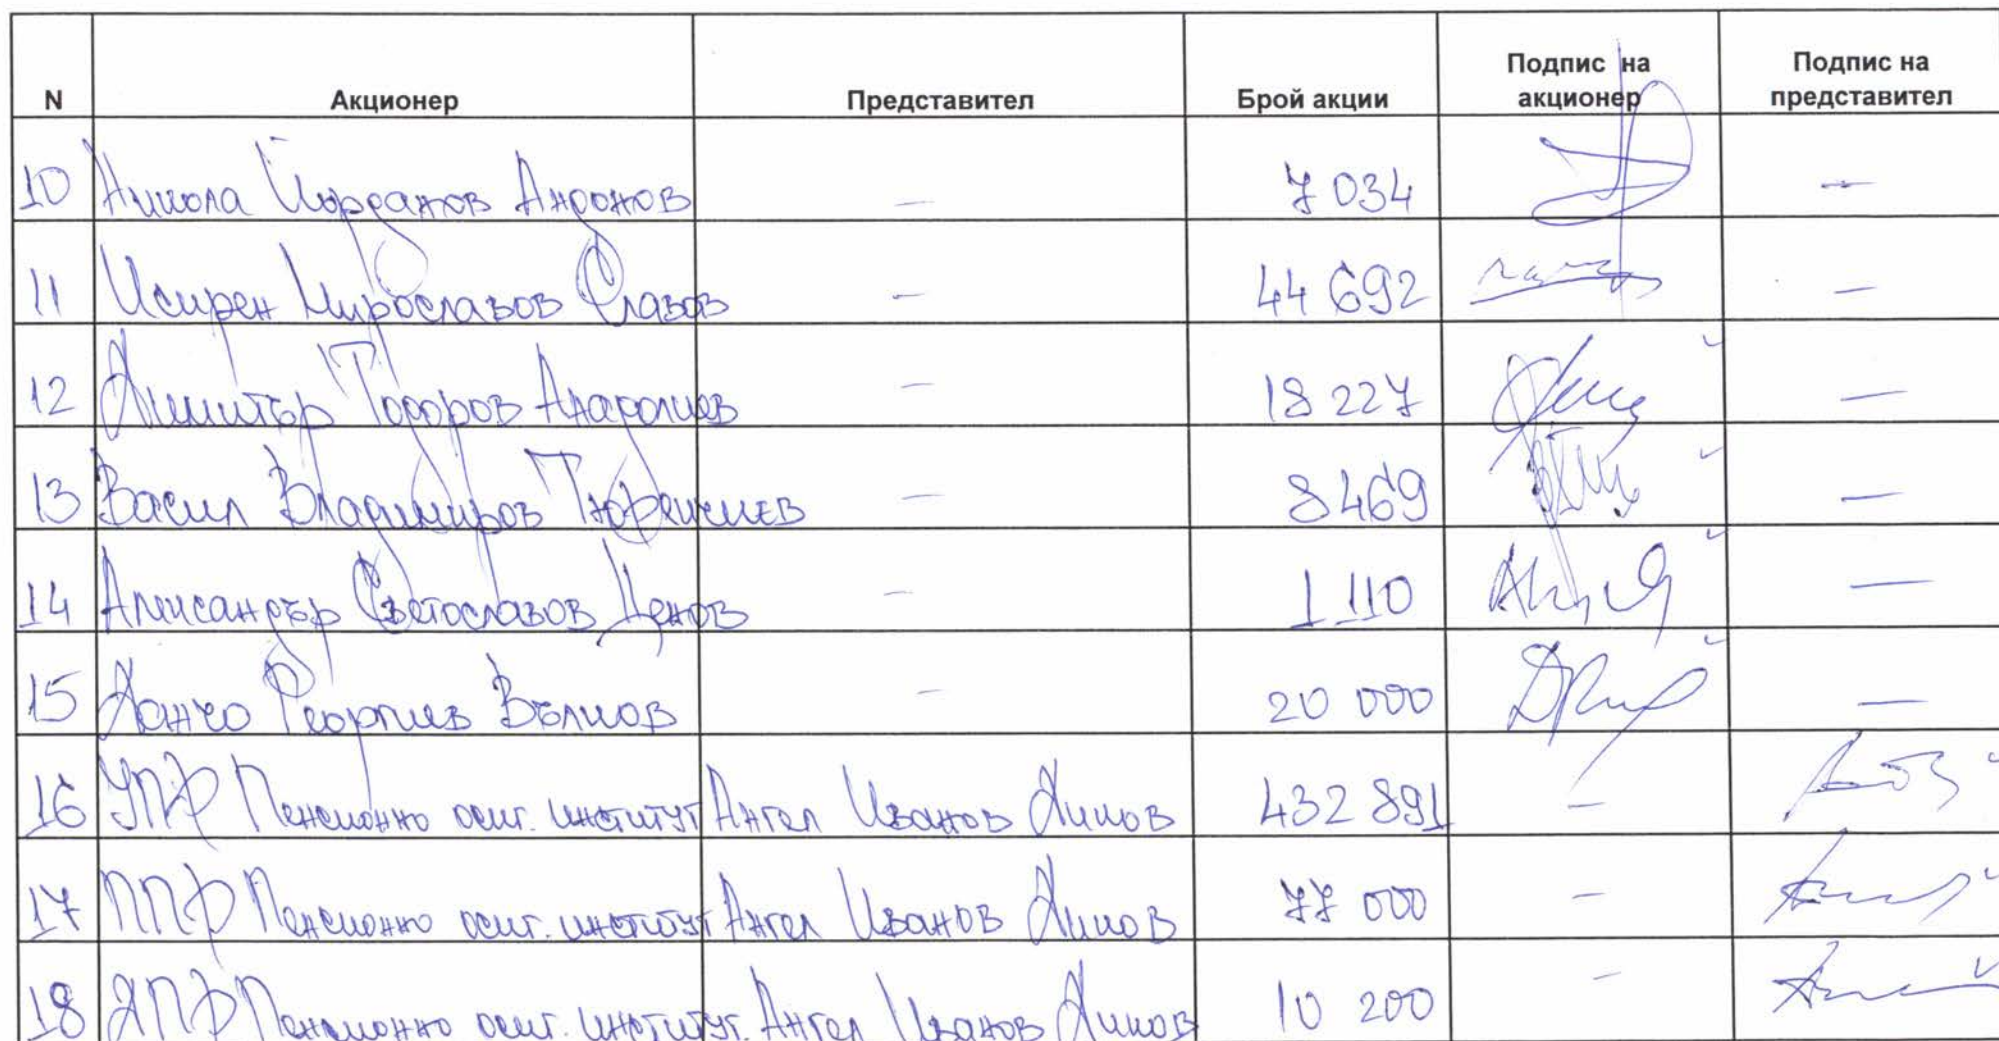 N Акционер Представител Брой акции Подпис на акционер Подпис на представител
10 Никола Йорданов Андонов — 7 034 —
11 Исирен Мирославов Славов — 44 692 —
12 Димитър Тодоров Анадолиев — 18 227 —
13 Васил Владимиров — 8 469 —
14 Александър Светославов Ценов — 1 110 —
15 Дончо Георгиев Вълков — 20 000 —
16 УПФ Пенсионно осиг. институт Ангел Иванов Димов 432 891 —
17 ППФ Пенсионно осиг. институт Ангел Иванов Димов 77 000 —
18 ДПФ Пенсионно осиг. институт. Ангел Иванов Димов 10 200 —